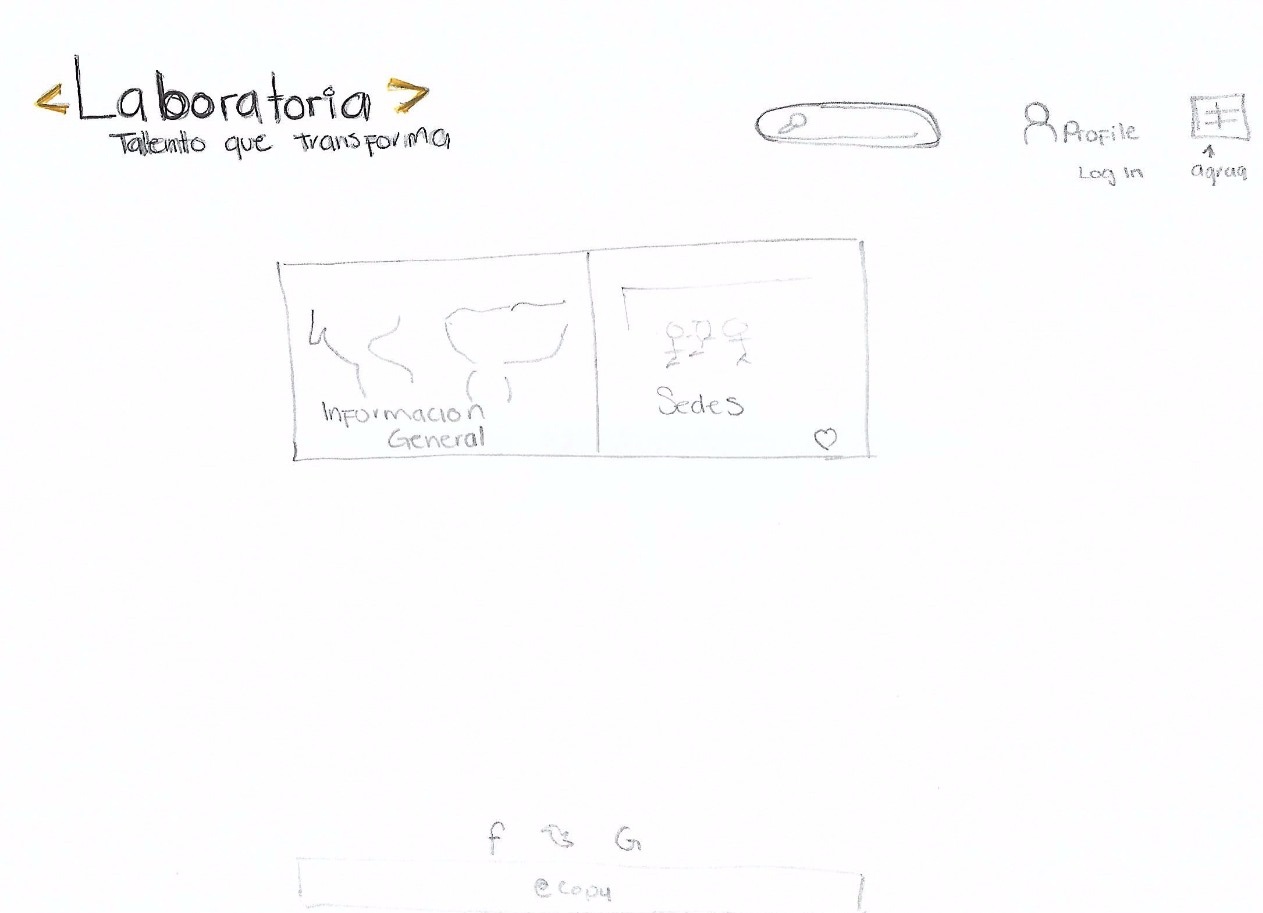 <Laboratoria>
Tallento que transforma
Profile
Log in
Informacion
General
Sedes
f G
@ copy